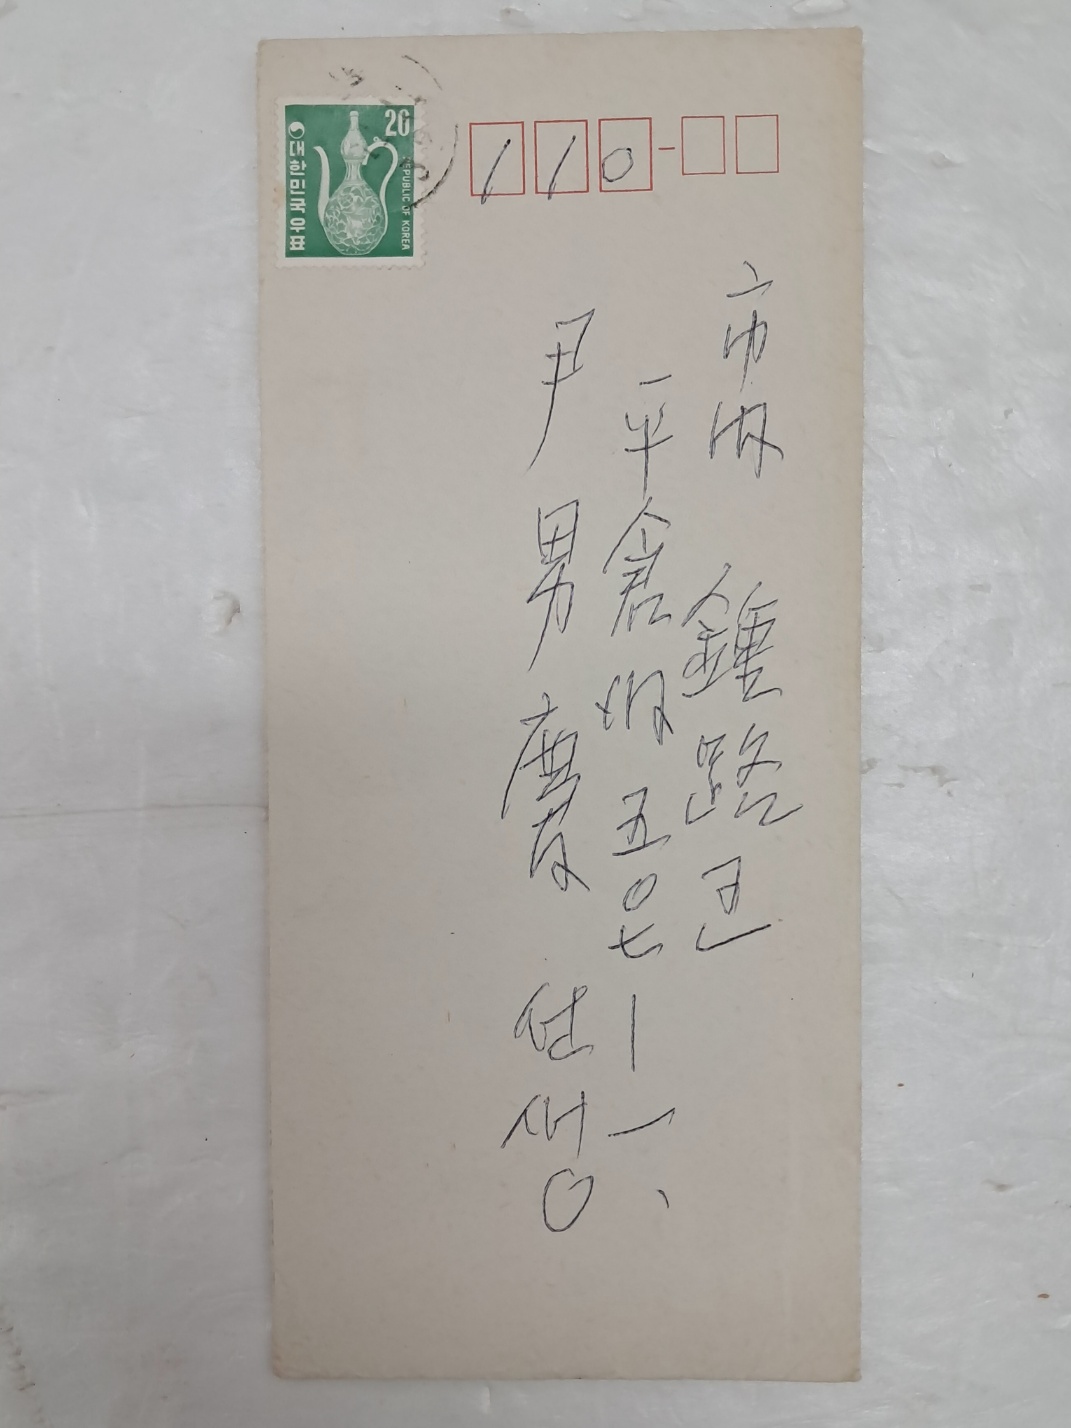 20
대한민국우표
REPUBLIC OF KOREA
110-
市內 鍾路区
平倉洞 五0七-一
尹男慶 선생